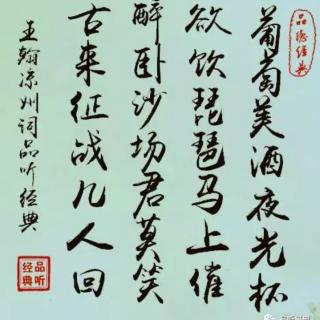 品聽經典
葡萄美酒夜光杯
欲饮琵琶马上催
醉卧沙场君莫笑
古来征战几人回
王翰凉州词品听经典
品听经典